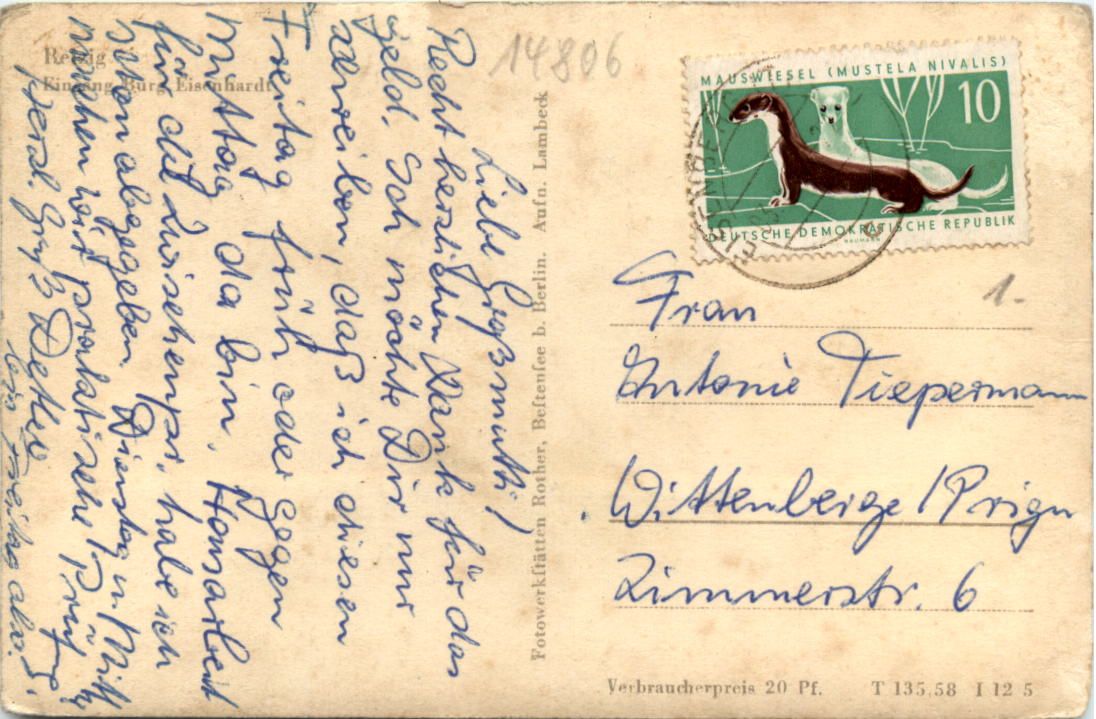 14806
Belzig
Eingang Burg Eisenhardt
Liebe Großmutti!
Recht herzlichen Dank für das
Geld. Ich möchte Dir nur
schreiben, daß ich diesen
Freitag früh oder gegen
Mittag da bin. Hausarbeit
für die Zwischenpr. habe ich
schon abgegeben. Dienstag u. Mitt.
machen wir praktische Prüfg.
Herzl. Gruß Detlef
bis Freitag also!
Fotowerkstätten Rother, Bestensee b. Berlin. Aufn. Lambeck
MAUSWIESEL (MUSTELA NIVALIS)
10
DEUTSCHE DEMOKRATISCHE REPUBLIK
NAUMANN
1.-
Frau
Antonie Tiepermann
Wittenberge/Prign
Zimmerstr. 6
Verbraucherpreis 20 Pf. T 135,58 I 12 5